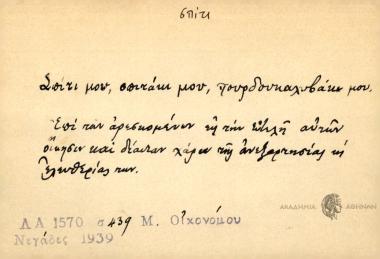 σπίτι
Σπίτι μου, σπιτάκι μου, πουρδουκαλυβάκι μου.
Ἐπὶ τῶν ἀρεσκομένων εἰς τὴν εὐτελῆ αὐτῶν
οἴκησιν καὶ δίαιταν χάριν τῆς ἀνεξαρτησίας κ
ἐλευθερίας των.
ΛΑ 1570 σ 439 Μ. Οἰκονόμου
Νεγάδες 1939
ΑΚΑΔΗΜΙΑ ΑΘΗΝΩΝ